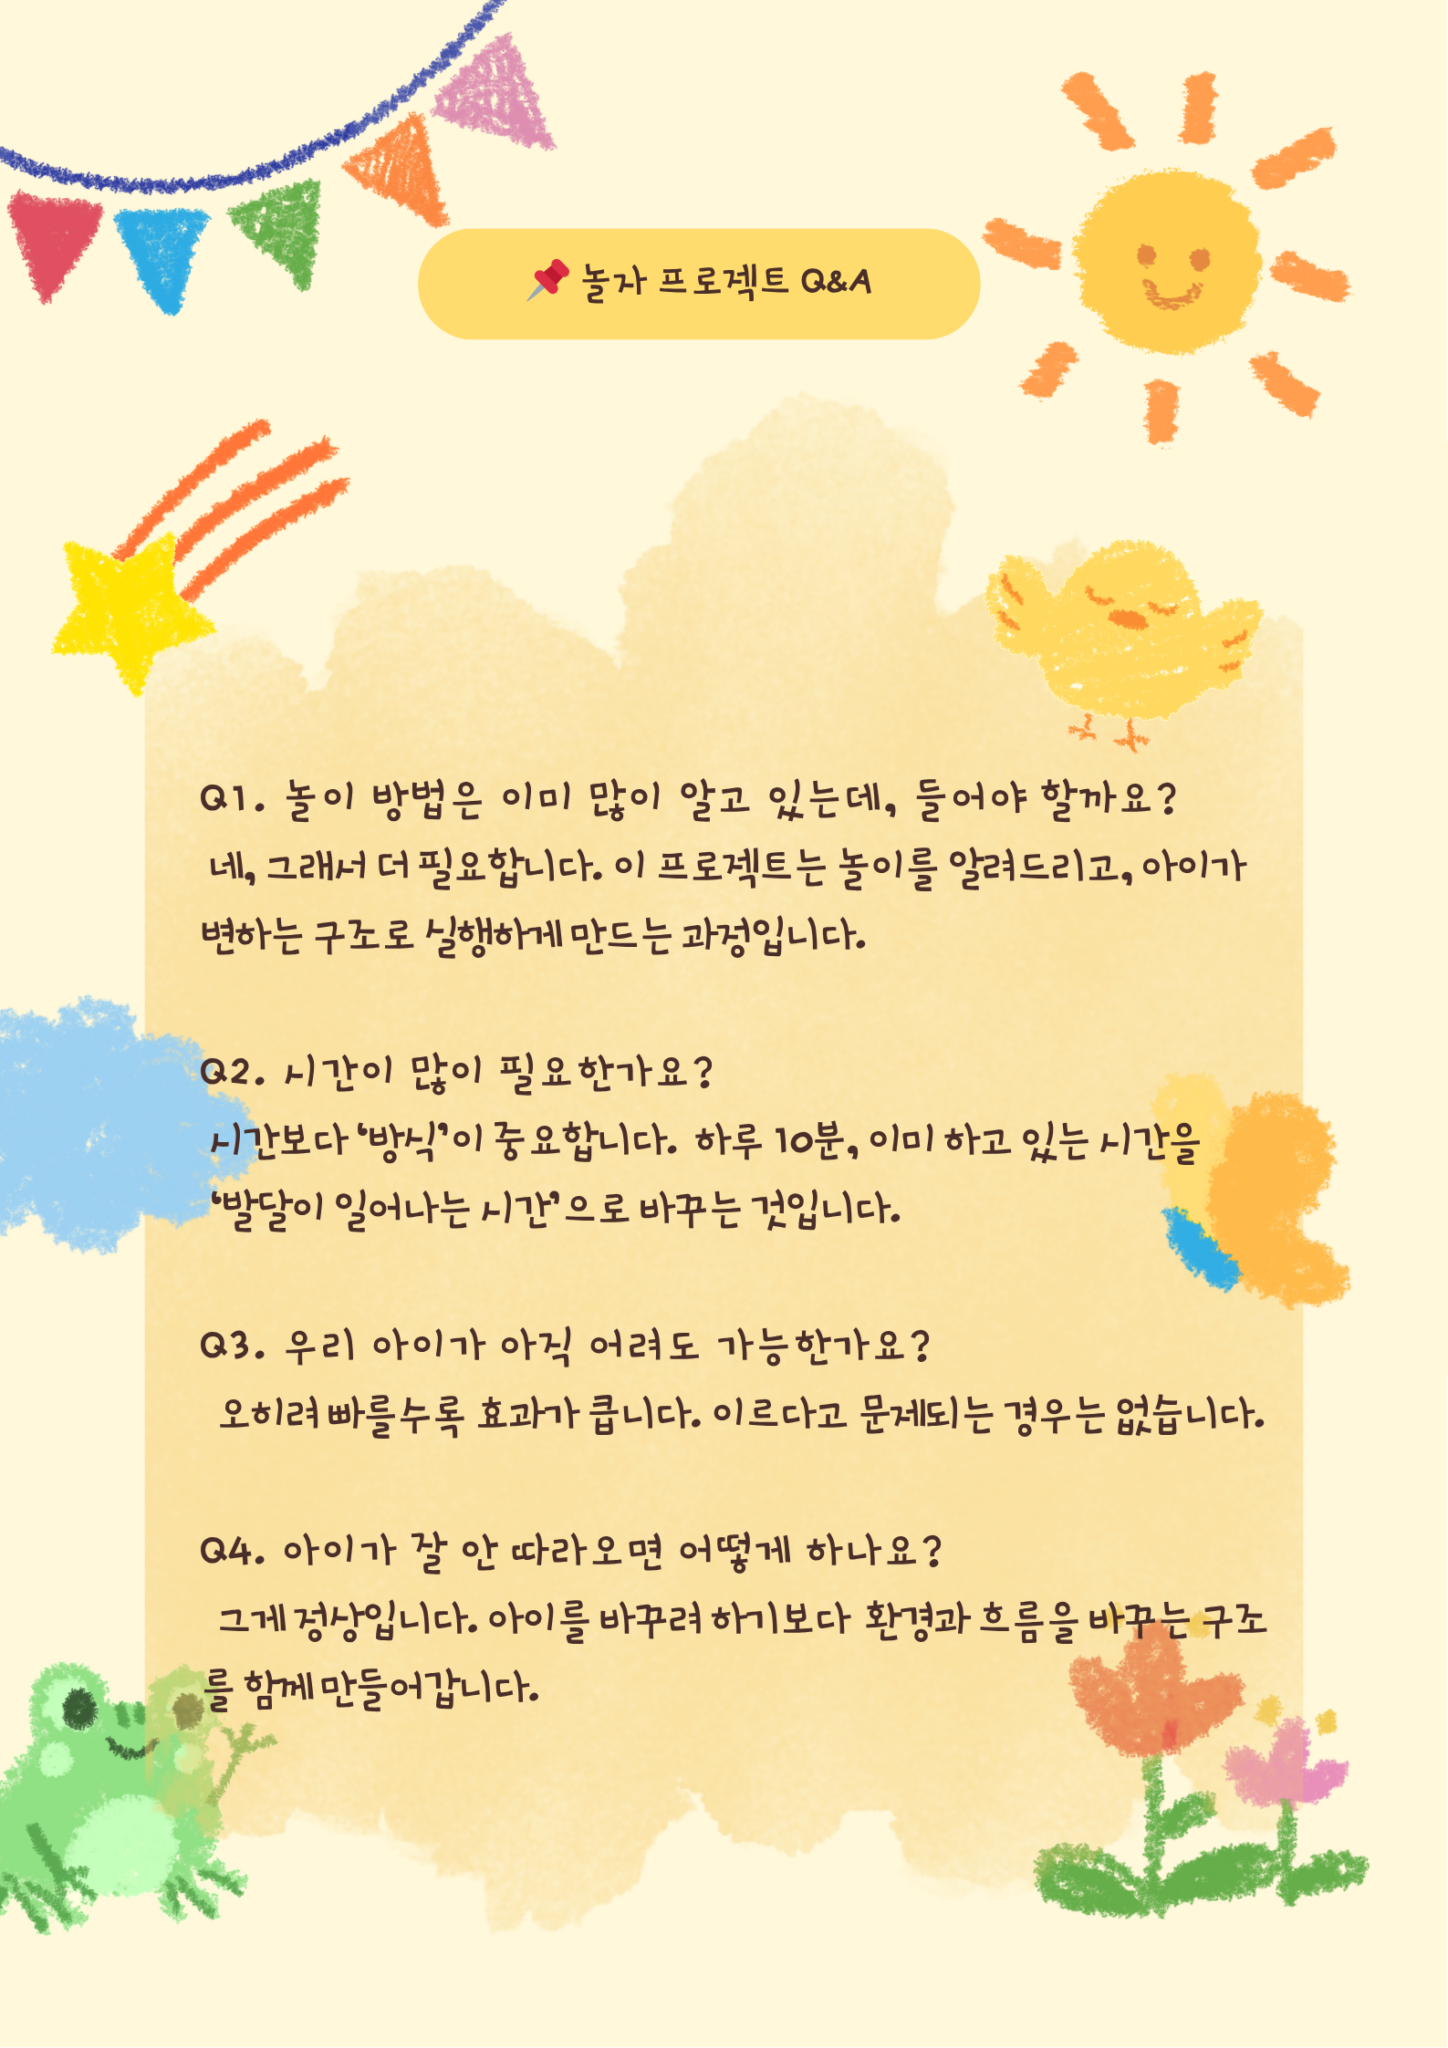 📌 놀자 프로젝트 Q&A
Q1. 놀이 방법은 이미 많이 알고 있는데, 들어야 할까요?
네, 그래서 더 필요합니다. 이 프로젝트는 놀이를 알려드리고, 아이가
변하는 구조로 실행하게 만드는 과정입니다.
Q2. 시간이 많이 필요한가요?
시간보다 ‘방식’이 중요합니다. 하루 10분, 이미 하고 있는 시간을
‘발달이 일어나는 시간’으로 바꾸는 것입니다.
Q3. 우리 아이가 아직 어려도 가능한가요?
오히려 빠를수록 효과가 큽니다. 이르다고 문제되는 경우는 없습니다.
Q4. 아이가 잘 안 따라오면 어떻게 하나요?
그게 정상입니다. 아이를 바꾸려 하기보다 환경과 흐름을 바꾸는 구조
를 함께 만들어갑니다.